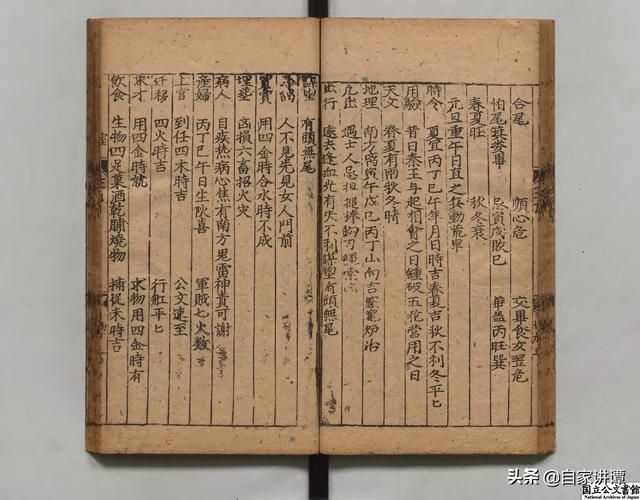 合尾　順心危　交畢食女翌危
怕尾箕婁畢　忌寅戌敗巳　華盖丙旺巽
春夏旺　秋冬衰
元旦重午日直之兵動荒旱
時令　夏宜丙丁巳午年月日時吉春夏吉秋不利冬平匕
用驗　昔日秦王与起相會之日纏破五花當用之日
天文　春夏有雨秋冬晴
地理　南方離寅午戌巳丙丁山向吉竈窑炉冶
九出　遇士人忌担槌捧鈎刀纏索
出行　遠去逢血光有失不利謀望有頭無尾
謀望　有頭無尾
人不見先見女人門前
買賣　用四金時合水時不成
埋塟　凶損六畜招火灾
病人　目疾热病心焦有南方鬼雷神責可謝
産婦　丙丁巳午日生队喜　軍賊七火数
上官　到任四木時吉　公文速至
迁移　四火時吉　行舡平匕
求才　用四金時就　求物用四金時有
飲食　生物四足菓酒乾脯燒物　捕捉未時吉
头条 @自家讲谭
国立公文書館
National Archives of Japan